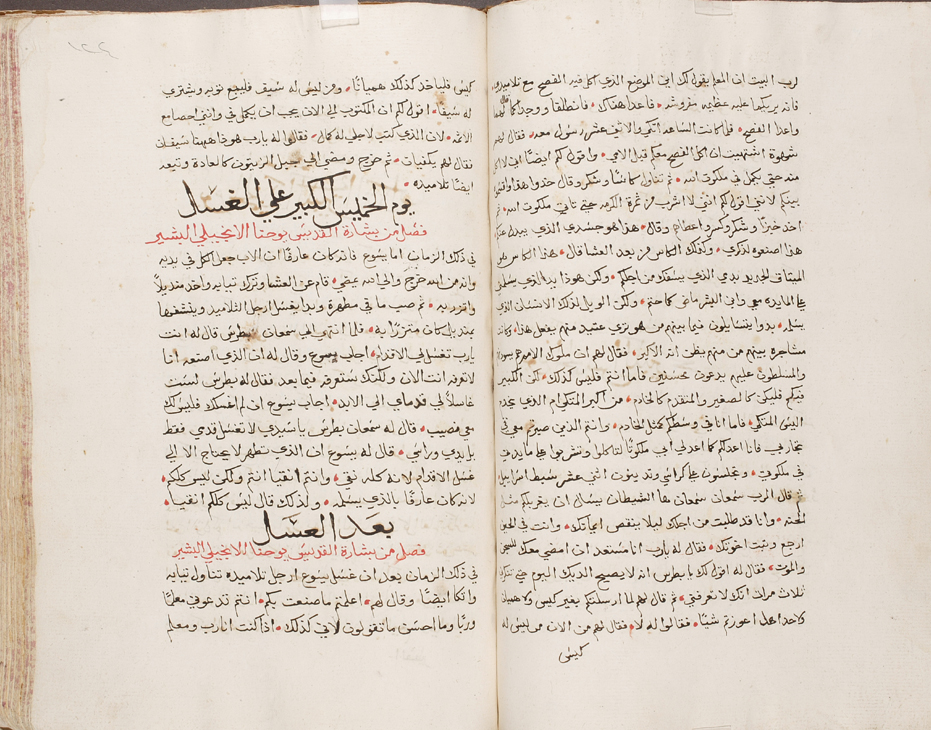 لرب البيت ان المعلم يقول لك اين الموضع الذي اكل فيه الفصح مع تلاميذي
فانه يريكما عليه عظيمه مفروشه • فاعدا هناك • فانطلقا ووجدا كما قال لهما
واعدا الفصح • فلما كانت الساعه اتكى والاثنى عشر رسول معه • فقال لهم
شهوة اشتهيت ان اكل الفصح معكم قبل الامي • واقول لكم ايضًا اني لا اكل
منه حتى يكمل في ملكوت الله • ثم تناول كاسًا وشكر وقال خذوا هذا واقسموا
بينكم لانني اقول لكم انني لا اشرب من ثمرة الكرمه حتى تاتي ملكوت الله • ثم
اخذ خبزًا وشكر وكسر واعطاهم وقال • هذا هو جسدي الذي يبدل عنكم
هذا اصنعوه لذكري • وكذلك الكاس من بعد العشا قال • هذا الكاس هو
الميتاق الجديد بدمي الذي يسفك من اجلكم • ولكن هوذا يد الذي يسلمني
على المايده معي وابن البشر ماض كما حتم • ولكن الويل لذلك الانسان الذي
يسلمه • بدوا يتسايلون فيما بينهم من هو ترى عتيد منهم يفعل هذا • وكانت
مشاجره بينهم من منهم يظن انه الاكبر • فقال لهم ان ملوك الامم
والمسلطون عليهم يدعون محسنين فاما انتم فليس كذلك • لكن الكبير
فيكم فليكن كالصغير والمتقدم كالخادم • من اكبر المتكي ام الذي يخدم
اليس المتكي • فاما انا في وسطكم كمثل الخادم • وانتم الذين صبرتم معي في
تجاربي فانا اعدلكم كما اعد لي ابي ملكوتًا لتاكلوا وتشربوا على مايدتي
في ملكوتي • وتجلسون على كراسي وتدينون اثنى عشر سبط اسراييل
ثم قال الرب سمعان سمعان ها الشيطان يسال ان يغربلكم مثل
الحنطه • وانا قد طلبت من اجلك ليلا ينقص ايمانك • وانت في الحين
ارجع وثبت اخوتك • فقال له يارب انا مستعد ان امضي معك للسجن
والموت • فقال له اقول لك يا بطرس انه لا يصيح الديك اليوم حتى تنكرني
ثلاث مرات انك لا تعرفني • ثم قال لهم لما ارسلتكم بغير كيس ولا هميان
ولا حدا هل اعوزتم شيًا • فقالوا له لا • فقال لهم من الان من ليس له
كيس
١٢٤
كيس فلياخذ كذلك هميانًا • ومن ليس له سيف فليبع ثوبه ويشتري
له سيفًا • اقول لكم ان المكتوب الى الان يجب ان يكمل في وانني احصا مع
الاثمه • لان الذي كتب لاجلي له كمال • فقالوا له يارب هوذا هاهنا سيفان
فقال لهم يكفيان • ثم خرج ومضى الى جبل الزيتون كالعادة وتبعه
ايضًا تلاميذه •
يوم الخميس الكبير على الغسل
فصل من بشارة القديس يوحنا الانجيلي البشير
في ذلك الزمان اما يسوع فانه كان عارفًا ان الاب جعل الكل في يديه
وانه من الله خرج والى الله يمضي • قام عن العشا وترك ثيابه واخذ منديلًا
واتزر به • ثم صب ما في مطهرة وبدا يغسل ارجل التلاميد وينشفها
بمنديل كان متزرًا به • فلما انتهى الى سمعان بطرس قال له انت
يارب تغسل لي الاقدام • اجاب يسوع وقال له ان الذي اصنعه انا
لا تعرفه انت الان ولكنك ستعرفه فيما بعد • فقال له بطرس لست
غاسلًا لي قدماي الى الابد • اجاب يسوع ان لم اغسلك فليس لك
معي نصيب • قال له سمعان بطرس يا سيدي لا تغسل قدمي فقط
بل يدي وراسي • قال له يسوع ان الذي تطهر لا يحتاج الا الى
غسل الاقدام لانه كله نقي • وانتم انقيا انتم ولكن ليس كلكم •
لانه كان عارفًا بالذي يسلمه • ولذلك قال ليس كلكم انقيا •
بعد الغسل
فصل من بشارة القديس يوحنا الانجيلي البشير
في ذلك الزمان بعد ان غسل يسوع ارجل تلاميذه تناول ثيابه
واتكا ايضًا وقال لهم • اعلمتم ما صنعت بكم • انتم تدعوني معلمًا
وربًا وما احسن ما تقولون لاني كذلك • اذا كنت انا رب ومعلم